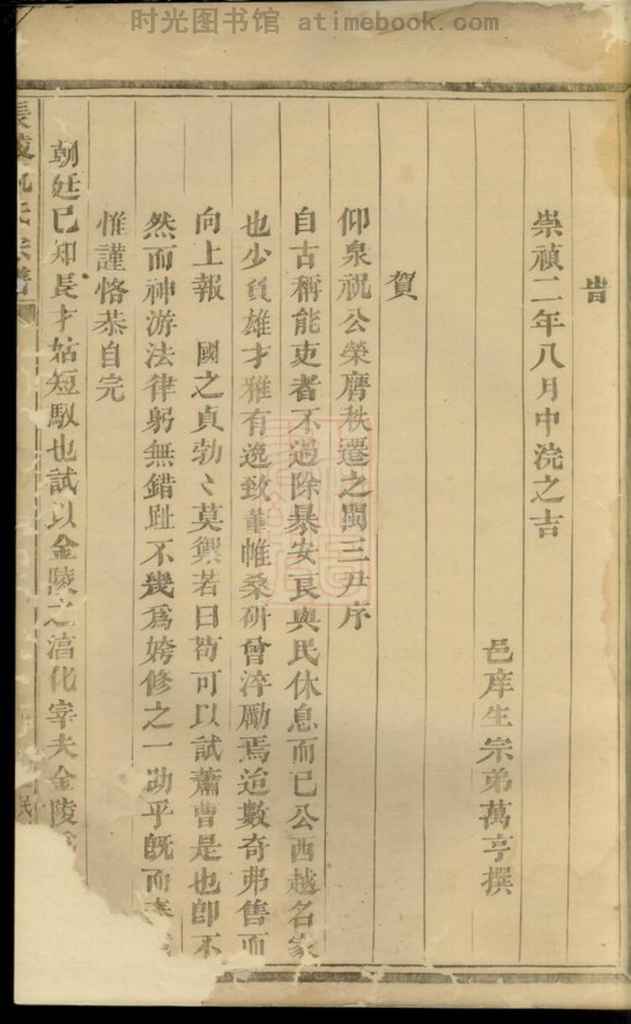 时光图书馆 atimebook.com
旹
崇禎二年八月中浣之吉
邑庠生宗弟萬亨撰
賀
仰泉祝公榮膺秩遷之閩三尹序
自古稱能吏者不過除暴安良與民休息而已公西越名家
也少負雄才雅有逸致董帷桑研曾淬勵焉迨數奇弗售而
向上報 國之貞勃〻莫禦若曰苟可以試蕭曹是也卽不
然而神游法律躬無錯趾不幾爲姱修之一助乎旣而
惟謹恪恭自完
朝廷已知長才姑短馭也試以金陵之滀化宰夫金陵
氏宗譜